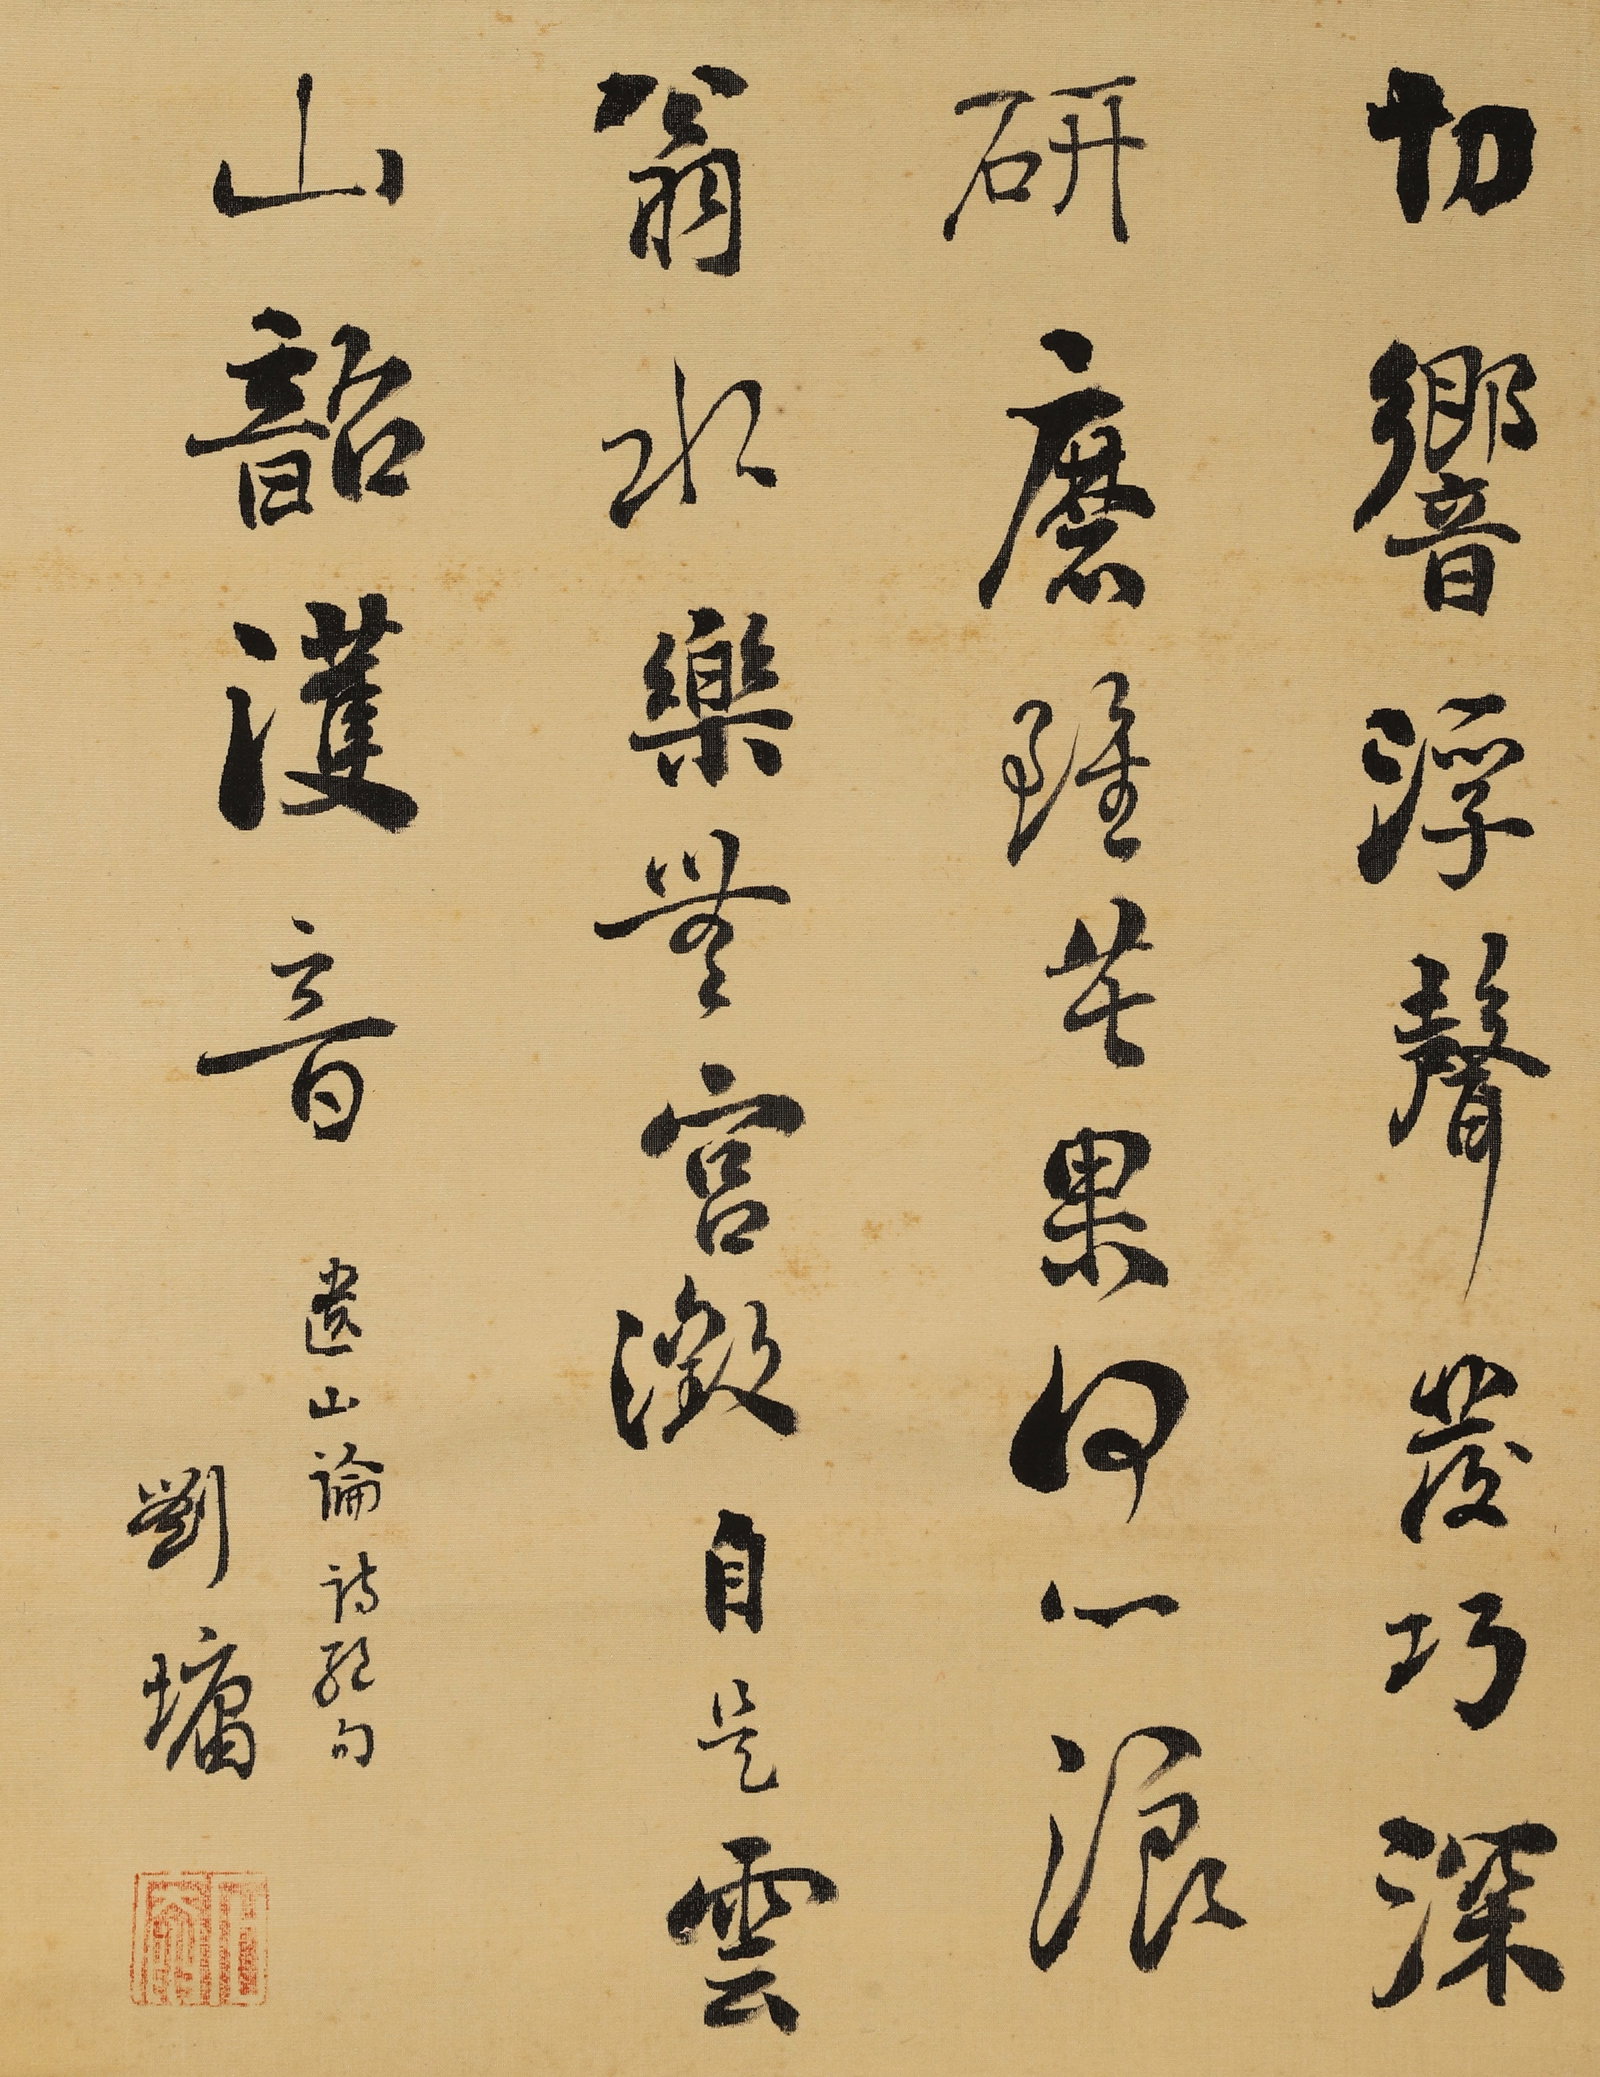 切響浮聲發巧深
研磨雖苦果何心浪
翁水樂無宮徵自是雲
山韶濩音
遺山論詩絕句
劉墉